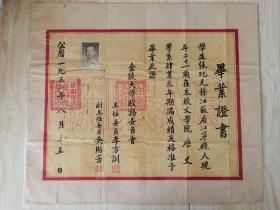 畢業證書
學生張純元係江蘇省江寧縣人現
年二十一歲在本校文學院歷史
學系肄業叁年期滿成績及格准予
畢業此證
金陵大學校務委員會
主任委員李方訓
副主任委員吳貽芳
公曆一九五一年八月十五日